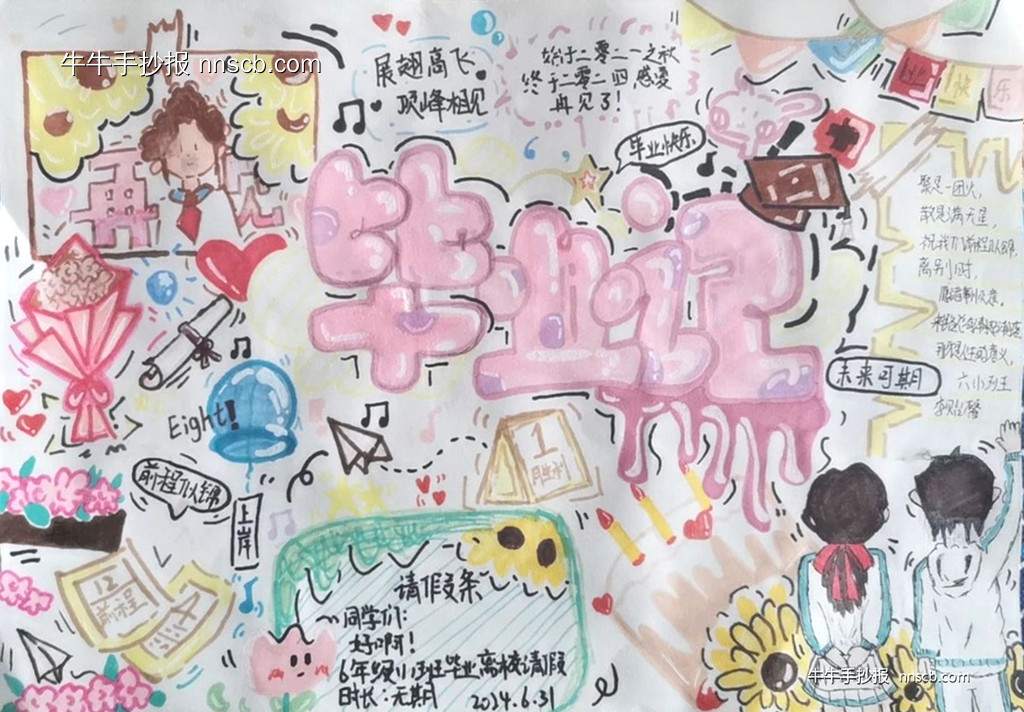 牛牛手抄报 nnscb.com
展翅高飞
顶峰相见
始于二零二一之秋
终于二零二四感凌
再见了！
毕业快乐
快
乐
再
见
毕业记
聚是一团火，
散是满天星，
祝我们前程似锦，
离别小时，
未来可期
六小班王
Eight!
前程似锦
上岸
1
12
前程
请假条
同学们：
好啊！
6年级小班毕业离校请假
时长：无期
2024.6.31
牛牛手抄报 nnscb.com